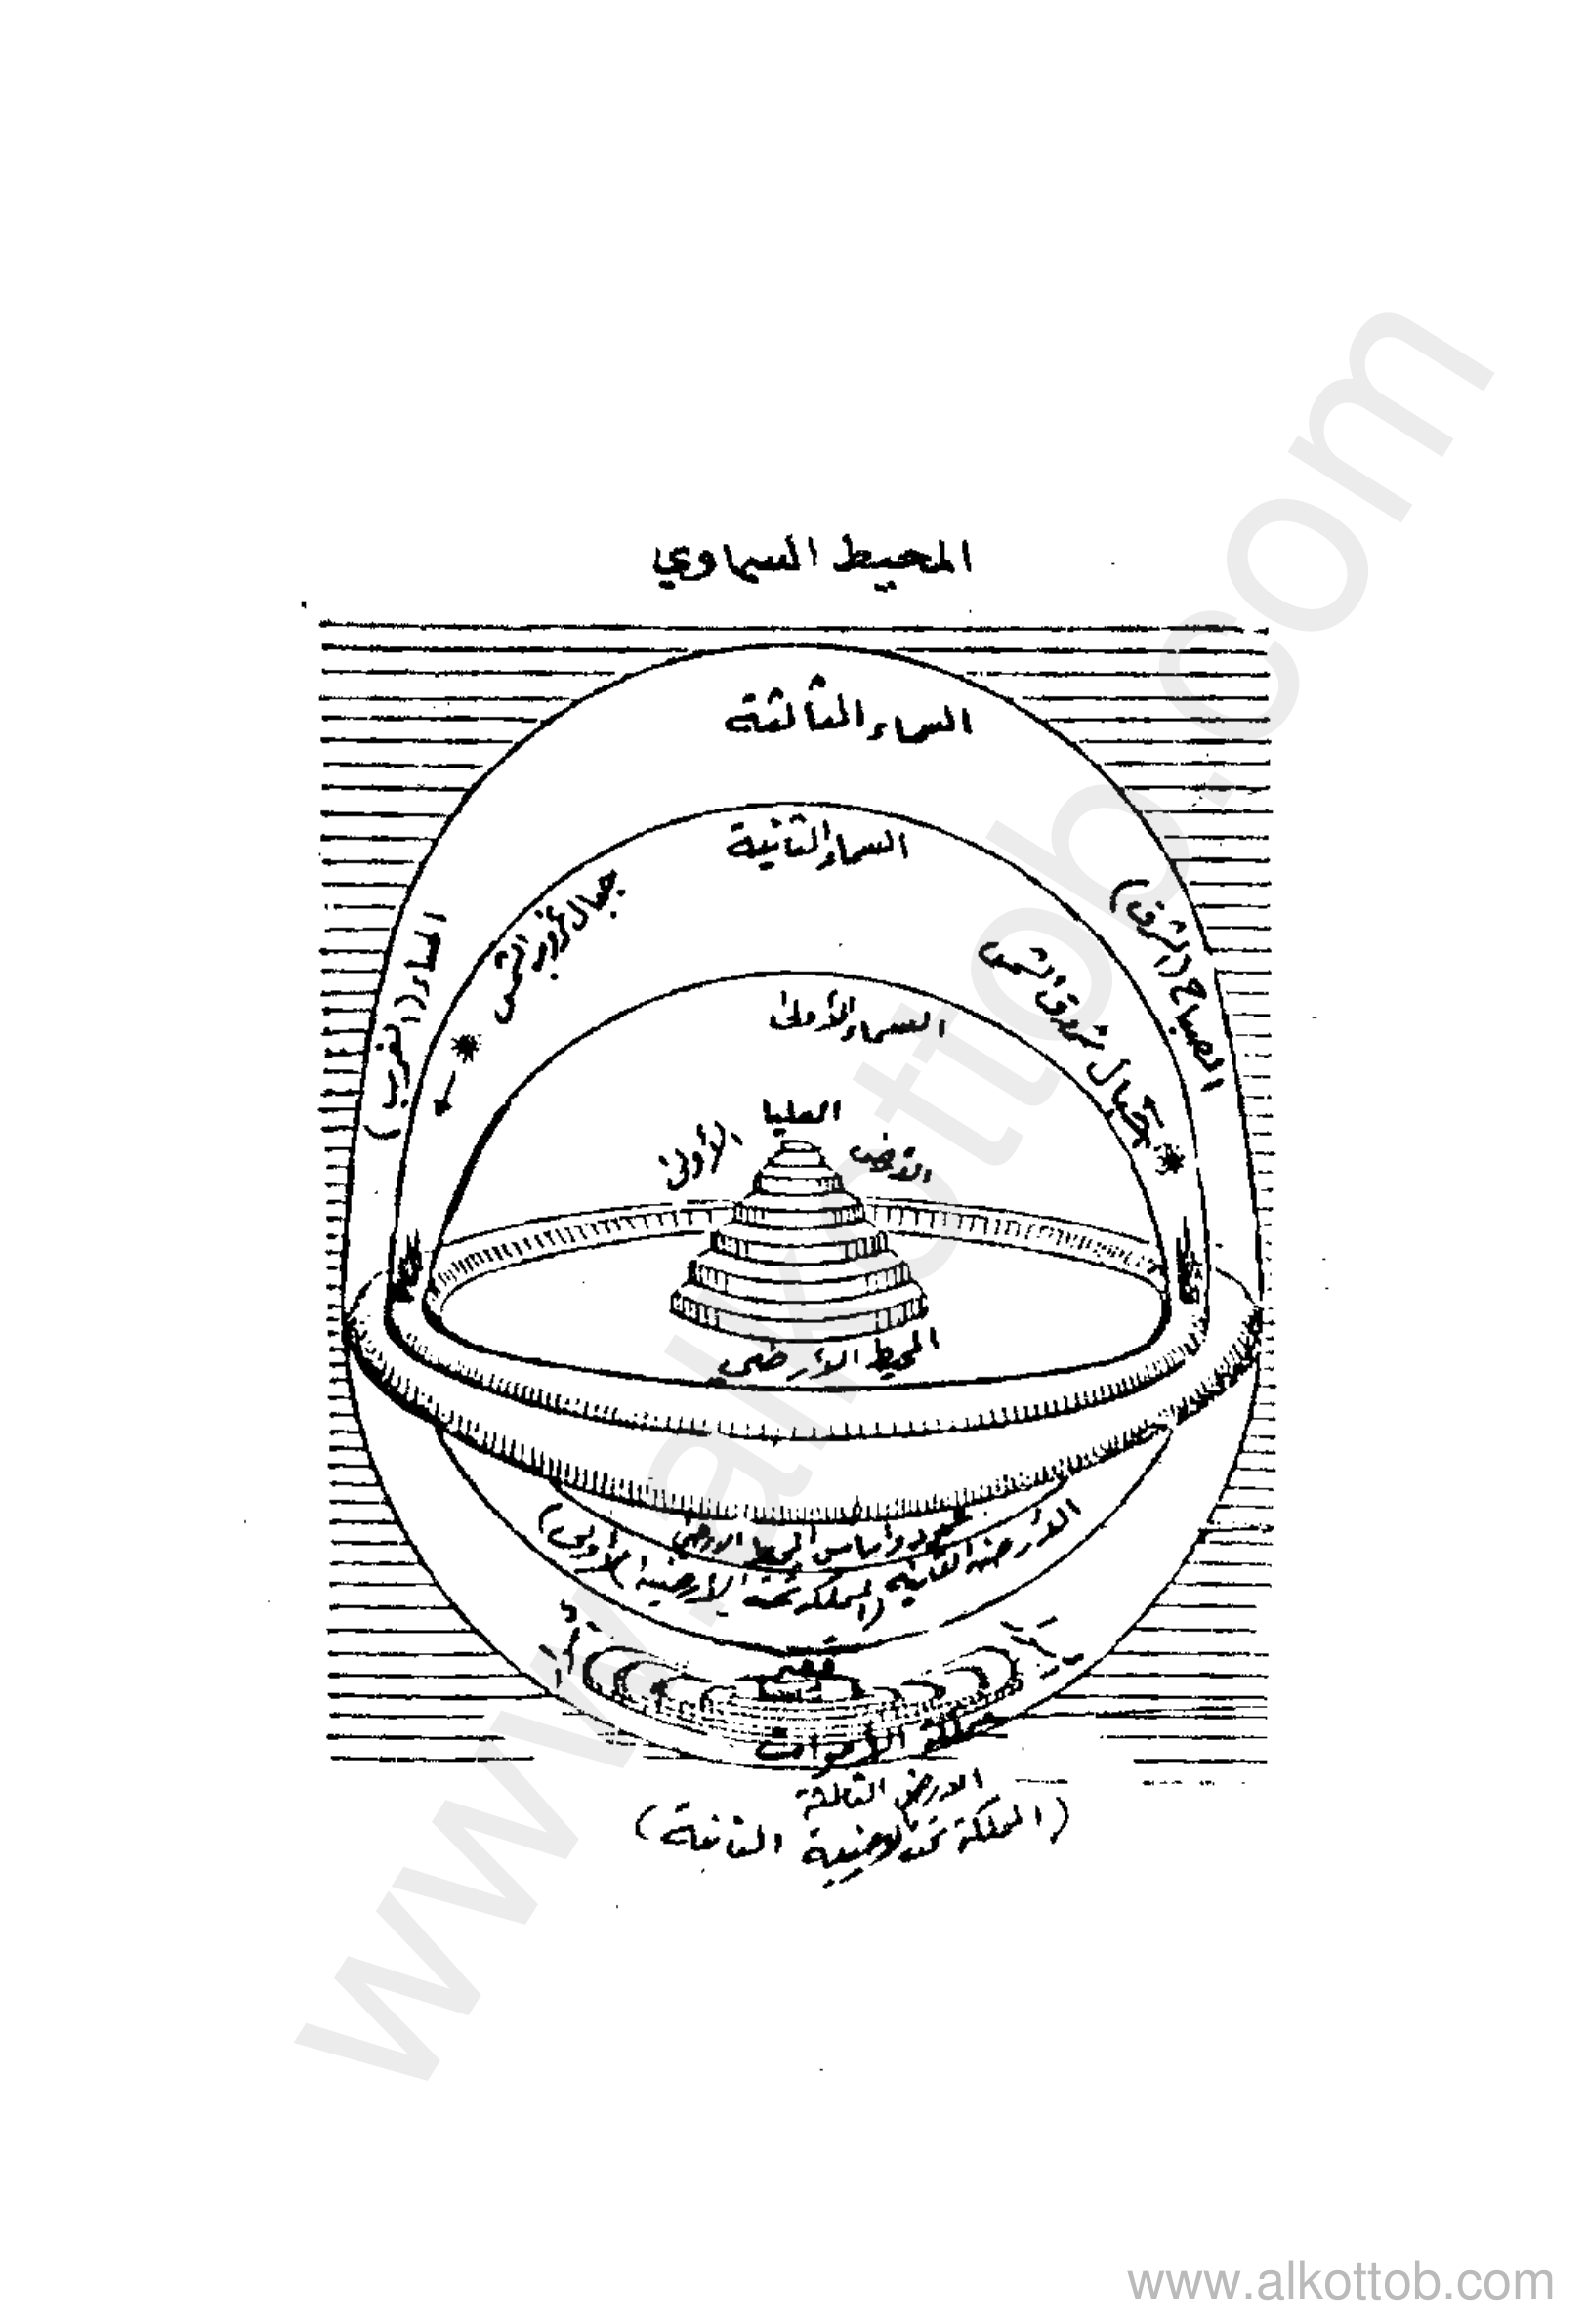 المحيط السماوي
السماء الثالثة
السماء الثانية
جبال غروب الشمس
جبال شروق الشمس
المساء (الغرب)
الصباح (الشرق)
السماء الأولى
العليا
الأرض
الأولى
المحيط الأرضي
وأساس المحيط الأرضي
الأرض الثانية (المملكة تحت الأرضية الأولى)
قصر
مملكة الأموات
الأرض الثالثة
(المملكة تحت الأرضية الثانية)
www.alkottob.com
www.alkottob.com